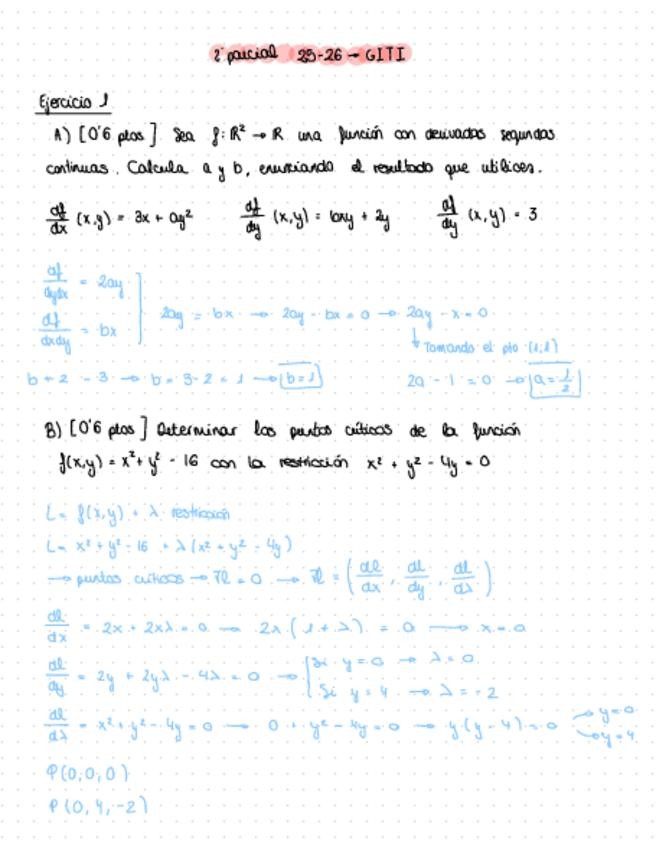 2º parcial 25-26 → GITI
Ejercicio 1
A) [0'6 ptos] Sea f: R² → R una función con derivadas segundas
continuas. Calcula a y b, enunciando el resultado que utilices.
df/dx (x,y) = 3x + ay² df/dy (x,y) = bxy + 2y df/dy (x,y) = 3
df/dydx = 2ay
df/dxdy = bx
2ay = bx → 2ay - bx = 0 → 2ay - x = 0
↓ Tomando el pto (1,1)
b + 2 = 3 → b = 3 - 2 = 1 → b = 1 2a - 1 = 0 → a = 1/2
B) [0'6 ptos] Determinar los puntos críticos de la función
f(x,y) = x² + y² - 16 con la restricción x² + y² - 4y = 0
L = f(x,y) + λ · restricción
L = x² + y² - 16 + λ(x² + y² - 4y)
→ puntos críticos → ∇L = 0 → ∇L = (dL/dx, dL/dy, dL/dλ)
dL/dx = 2x + 2xλ = 0 → 2x(1 + λ) = 0 → x = 0
dL/dy = 2y + 2yλ - 4λ = 0 → Si y = 0 → λ = 0
Si y = 4 → λ = -2
dL/dλ = x² + y² - 4y = 0 → 0 + y² - 4y = 0 → y(y - 4) = 0 → y = 0
→ y = 4
P(0,0,0)
P(0,4,-2)